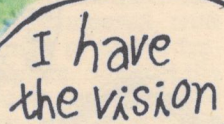 I have
the vision